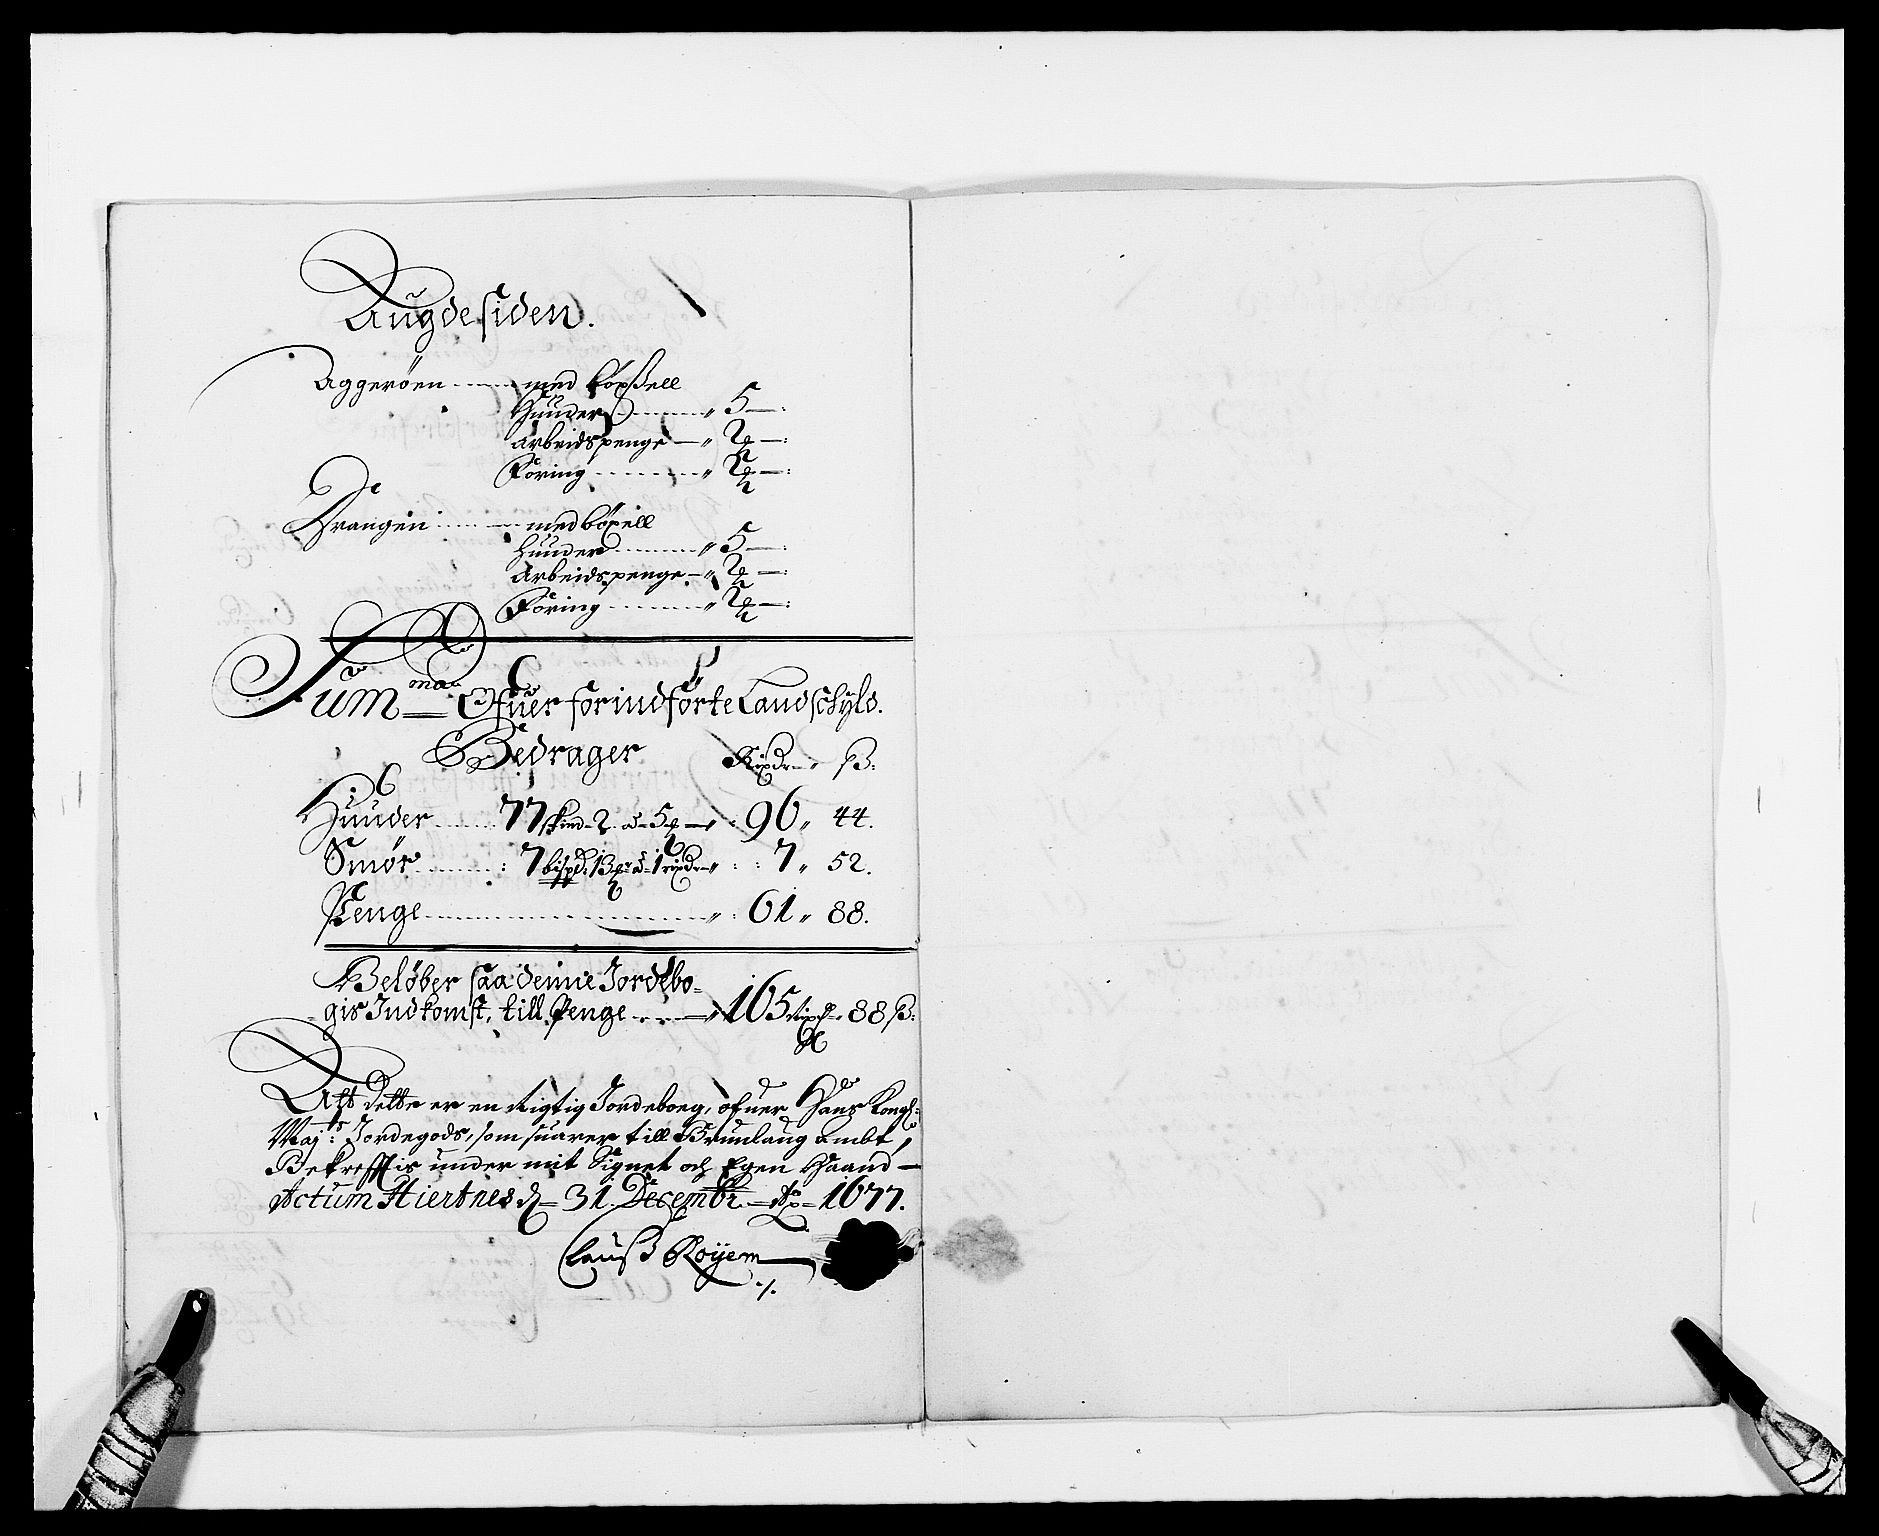 Augdesiden.
Aggeröen ---- med böxsell
Huuder ---- " 5 —:
Arbeidspenge — " 2 —:
Föring ---- " 2 —:
Vrangen ---- med böxell
Huuder ---- " 5 —:
Arbeidspenge — " 2 —:
Föring ---- " 2 —:
Summa Ofuer forindförte Landschyld.
Bedrager Rixdr " ß:
Huuder ---- 77 skind 2 à 5 — " 96 " 44.
Smör ---- : 7 bispd: 13 à 1 rixdr " : 7 " 52.
Penge ---- " : 61 " 88.
Belöber saa denne Jordebo-
gis Indkomst, till Penge ---- " 165 Rixdr 88 ß:
Att dette er en Rigtig Jordeboeg, ofuer Hans Kongl:
Maj:ts Jordegods, som suarer till Brunlaug Ambt,
Bekrefftis under mit Signet och Egen Haand —
Actum Hiertnes d — 31. Decembr. — Ao — 1677.
Clauß Röyem